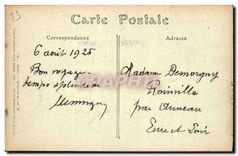 Carte Postale
Correspondance
Adresse
6 août 1925
Bon voyage
temps splendide
Madame Demorgny
Roinville
par Auneau
Eure et Loir